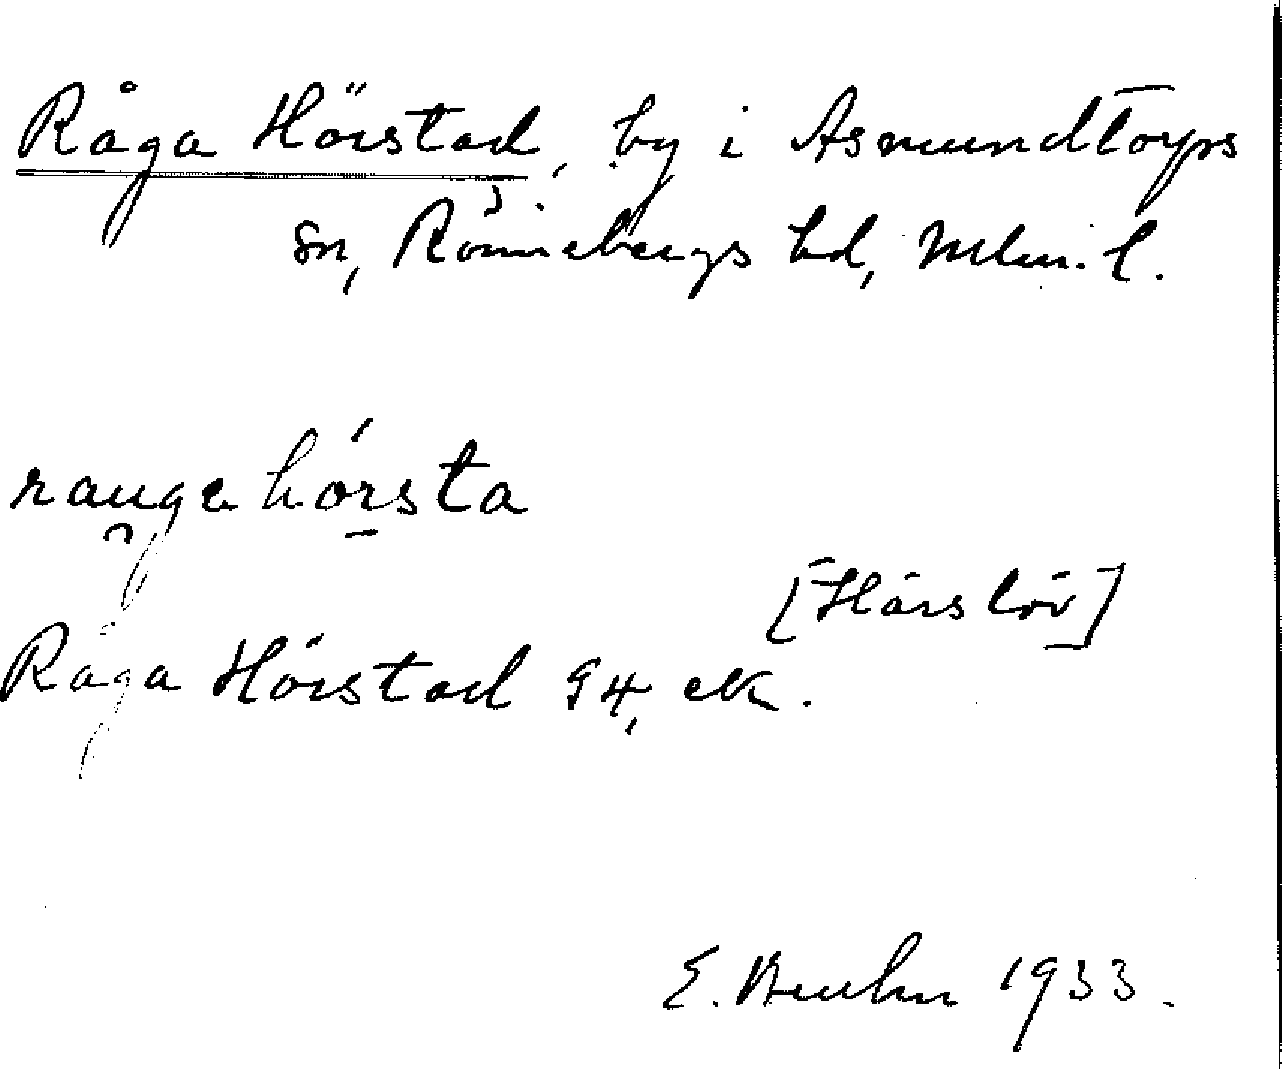 Råga Hörstad, by i Asmundtorps
sn, Rönnebergs hd, Mlm. l.
raugahórsta
[Härslöv]
Råga Hörstad G4, ek.
E. Bruhn 1933.